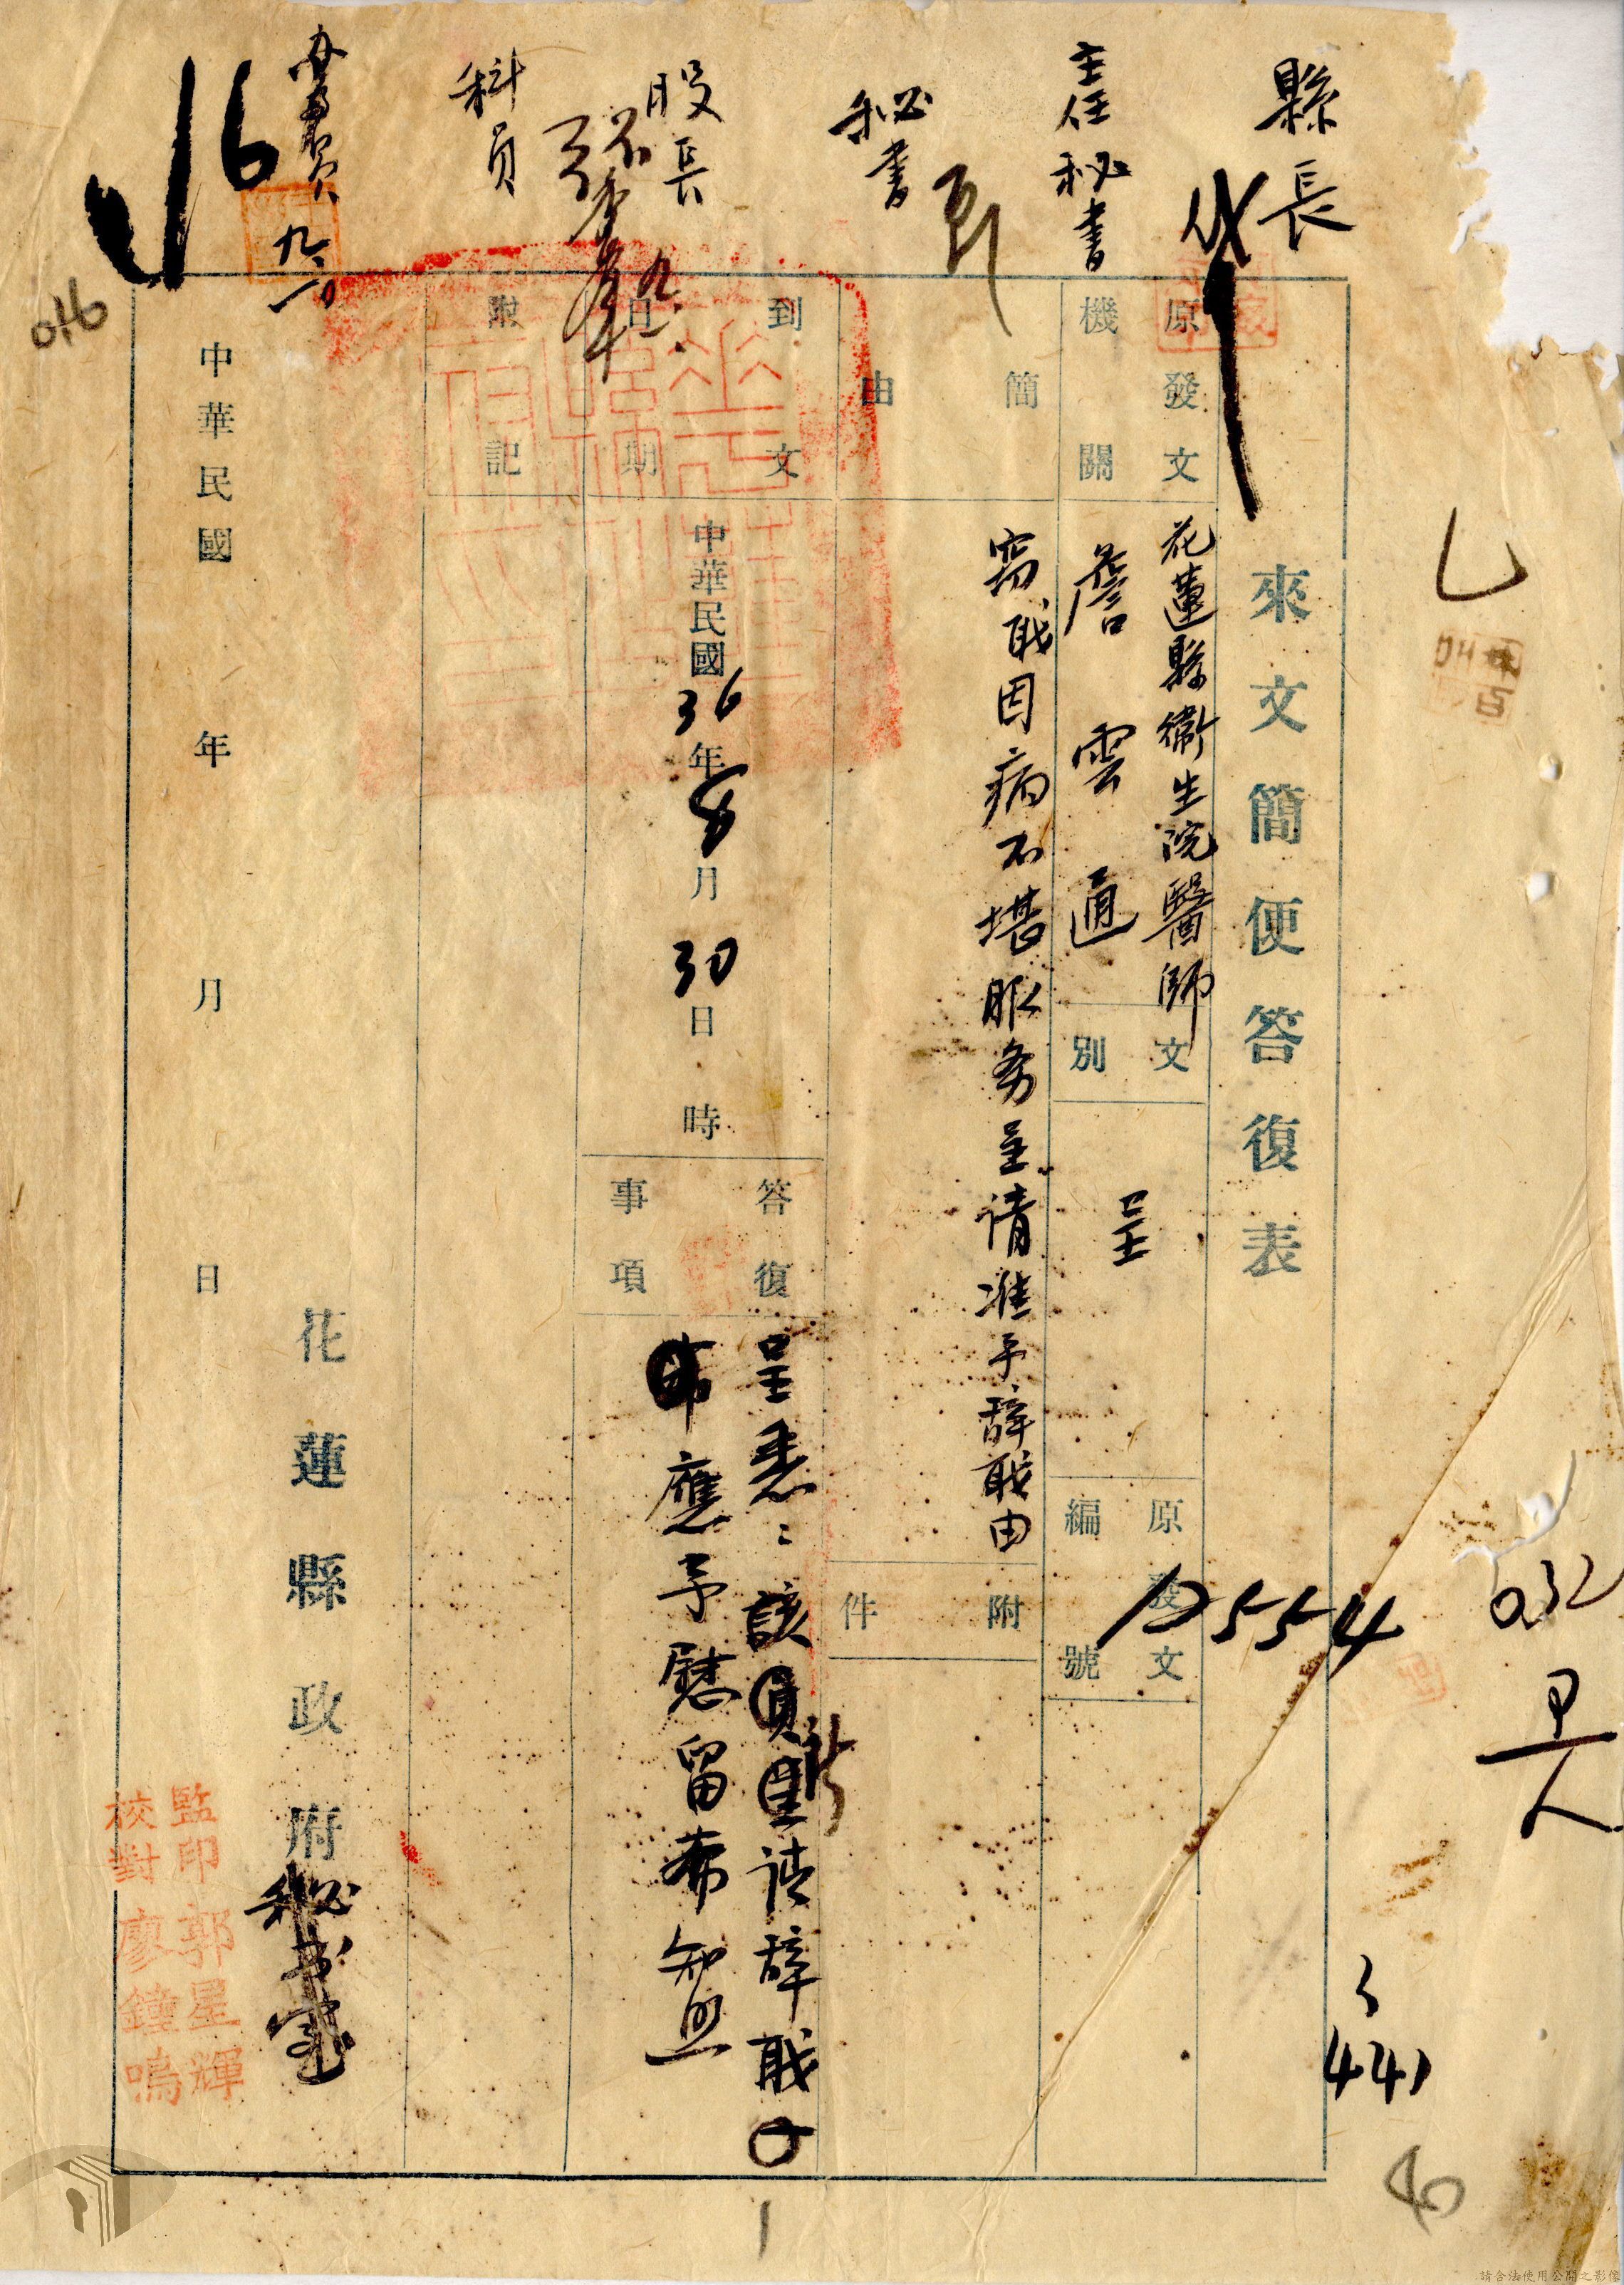 縣長
主任秘書
秘書
股長
科員
九、
九、一
16
016
來文簡便答復表
原發文機關
花蓮縣衛生院醫師
詹雲通
文別
呈
原發文編號
12554
簡由
竊職因病不堪服务呈请准予辞职由
附件
到文日期
中華民國36年8月30日時
答復事項
呈悉:該員呈请辞职
應予慰留希知照
附記
花蓮縣政府
秘书室
中華民國 年 月 日
監印 郭星輝
校對 廖鐘鳴
032
441
40
請合法使用公開之影像